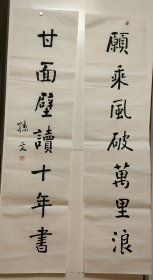 願乘風破萬里浪
甘面壁讀十年書
孫文